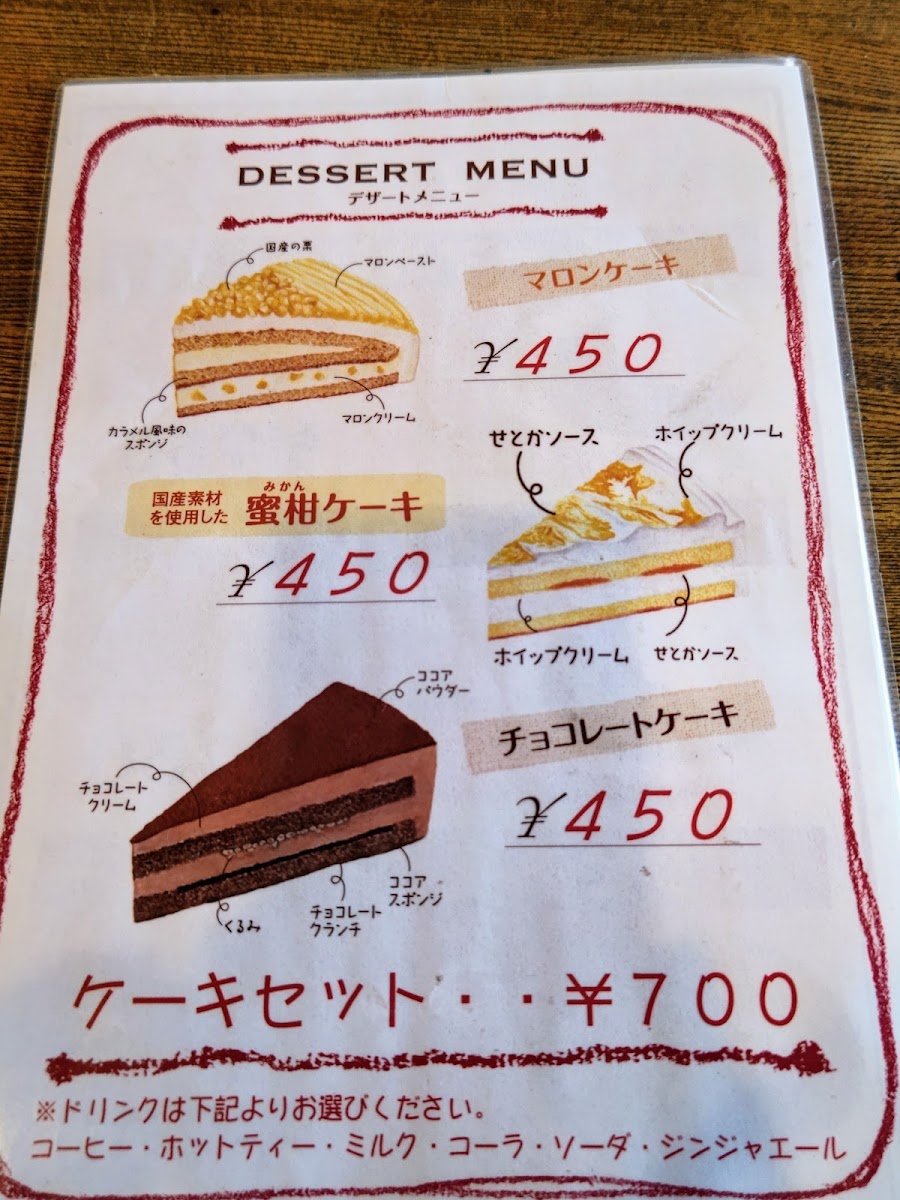 DESSERT MENU
デザートメニュー
国産の栗
マロンペースト
マロンケーキ
¥450
カラメル風味の
スポンジ
マロンクリーム
せとかソース
ホイップクリーム
国産素材
を使用した
みかん
蜜柑ケーキ
¥450
ホイップクリーム
せとかソース
ココア
パウダー
チョコレートケーキ
¥450
チョコレート
クリーム
くるみ
チョコレート
クランチ
ココア
スポンジ
ケーキセット・・¥700
※ドリンクは下記よりお選びください。
コーヒー・ホットティー・ミルク・コーラ・ソーダ・ジンジャエール